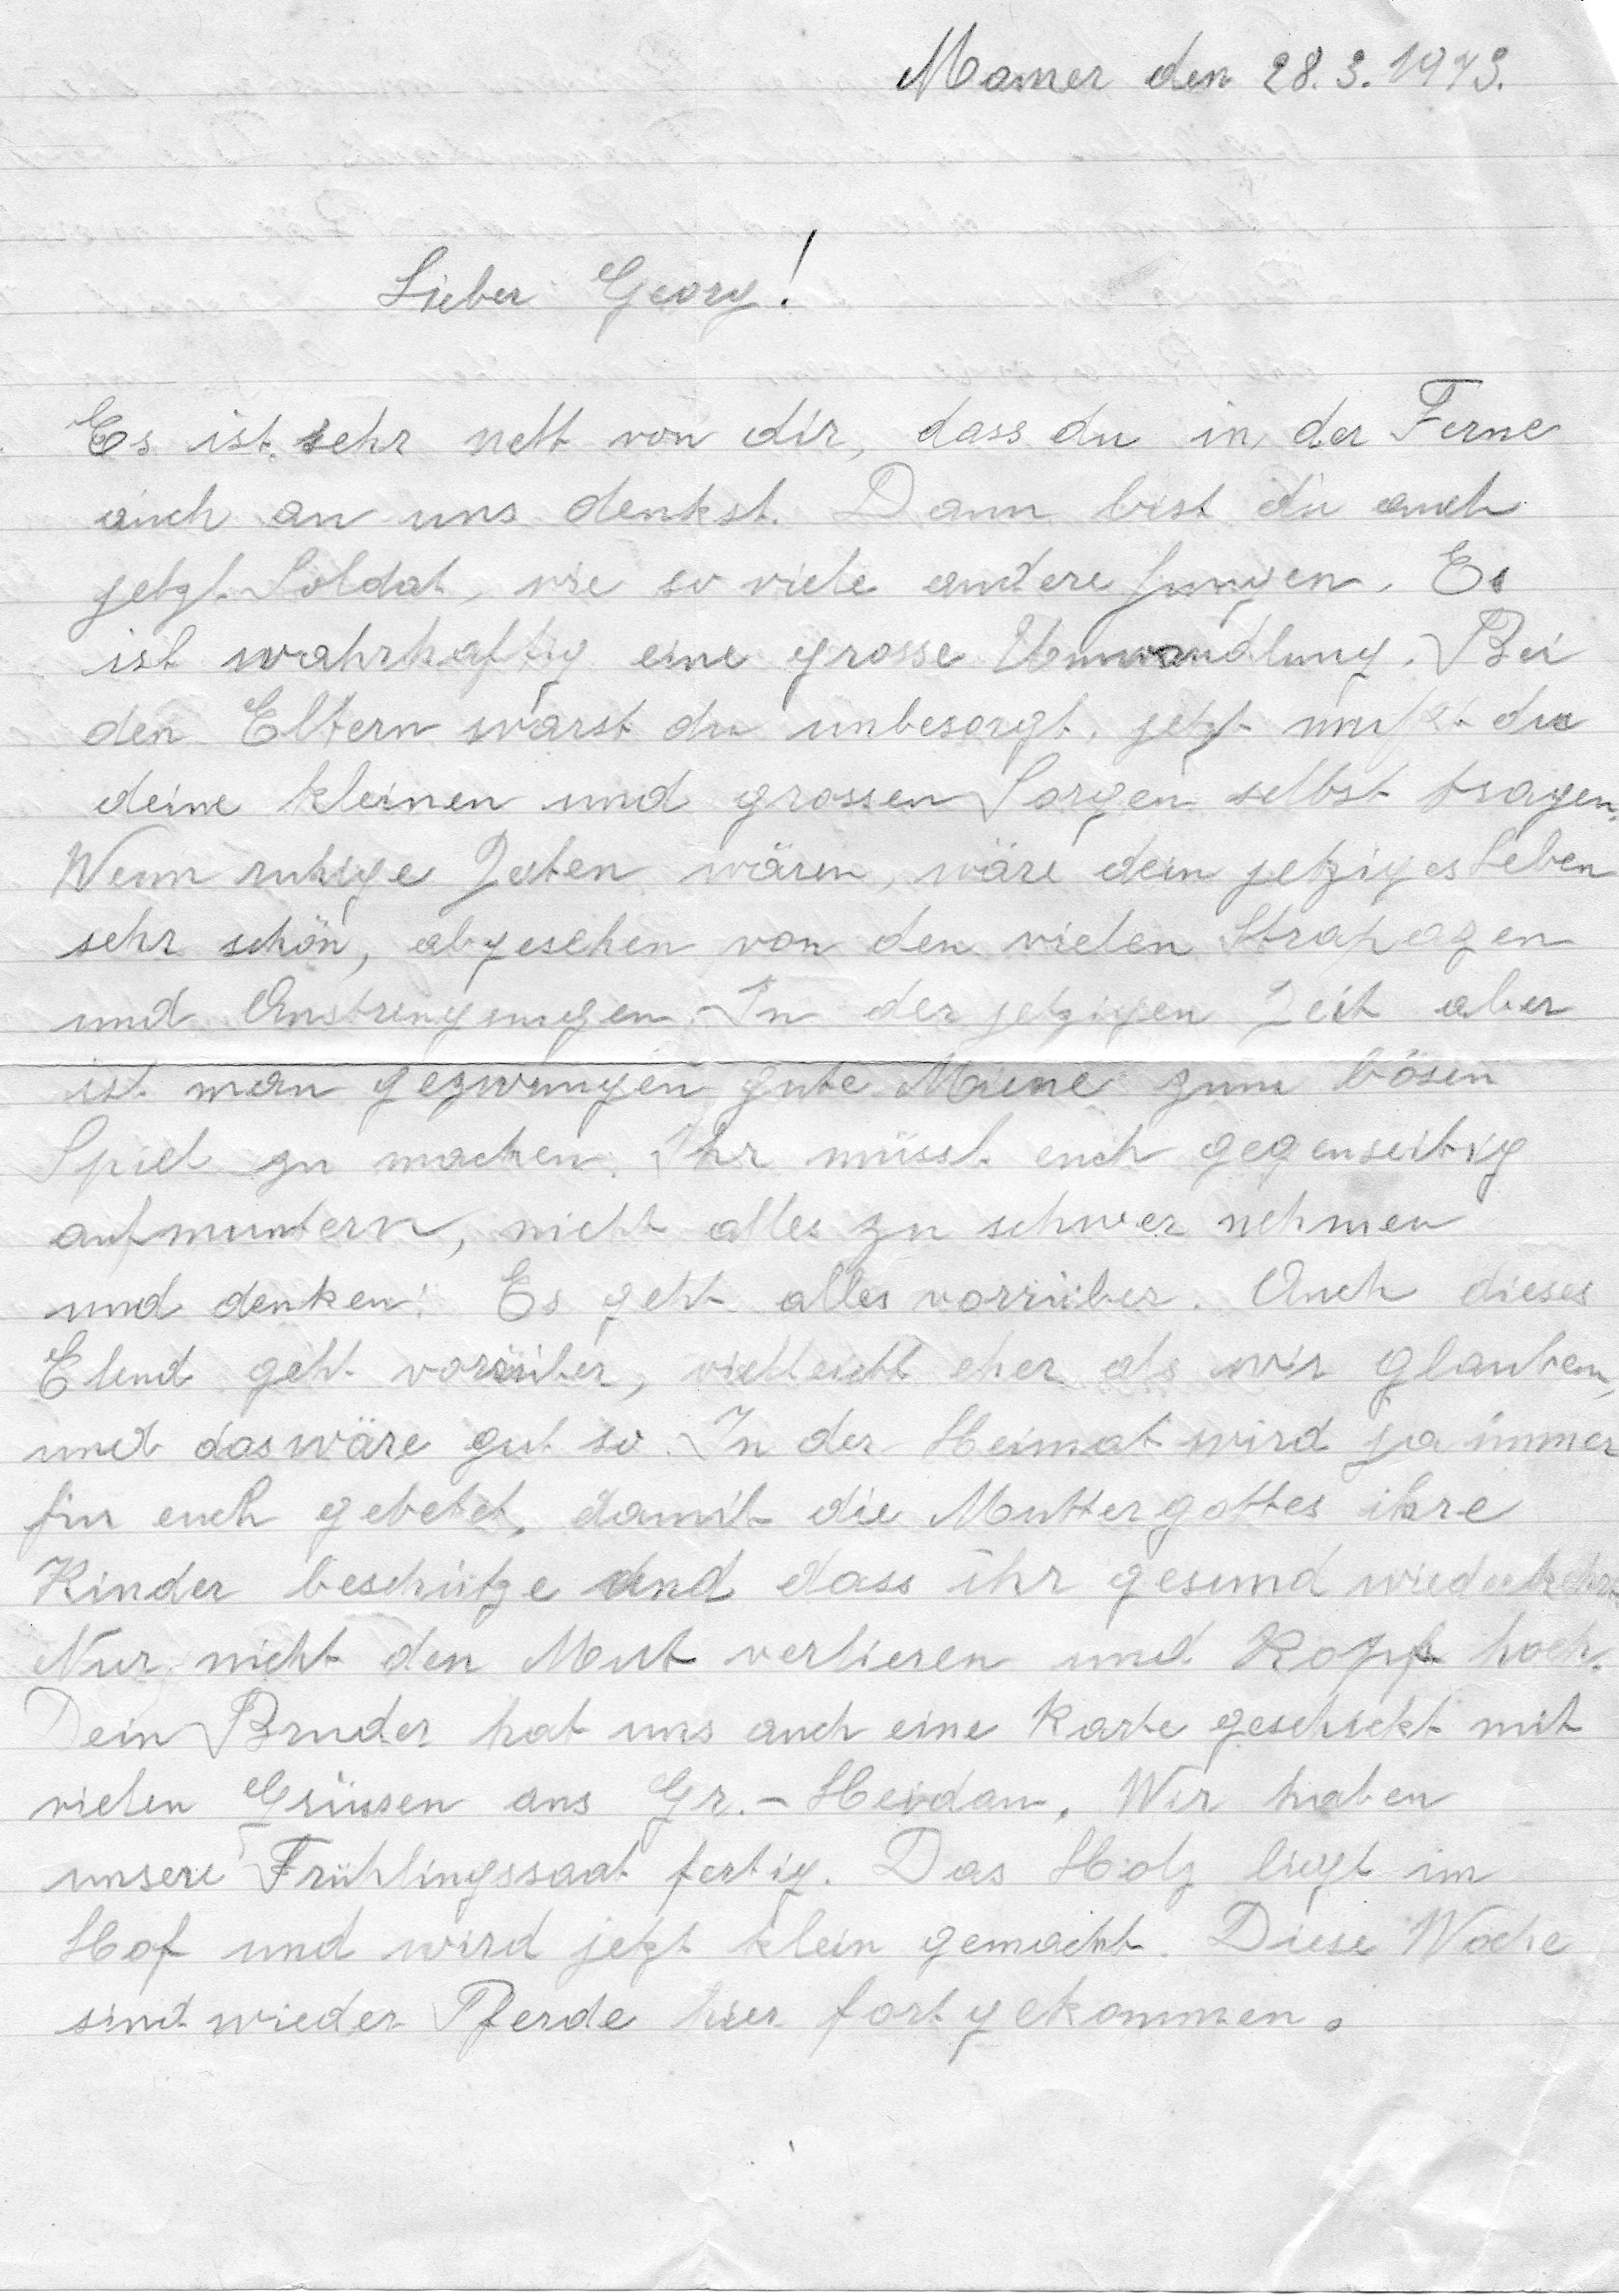 Mamer den 28.3.1943.
Lieber Georg!
Es ist sehr nett von dir, dass du in der Ferne
auch an uns denkst. Dann bist du auch
jetzt Soldat, wie so viele andere Jungen. Es
ist wahrhaftig eine grosse Umwandlung. Bei
den Eltern warst du unbesorgt, jetzt mußt du
deine kleinen und grossen Sorgen selbst tragen.
Wenn ruhige Zeiten wären, wäre dein jetziges Leben
sehr schön, abgesehen von den vielen Strapazen
und Anstrengungen. - In der jetzigen Zeit aber
ist man gezwungen gute Miene zum bösen
Spiel zu machen. Ihr müsst euch gegenseitig
aufmuntern, nicht alles zu schwer nehmen
und denken: Es geht alles vorrüber. Auch dieses
Elend geht vorrüber, vielleicht eher als wir glauben,
und das wäre gut so. In der Heimat wird ja immer
für euch gebetet, damit die Muttergottes ihre
Kinder beschütze und dass ihr gesund wiederkehrt.
Nur nicht den Mut verlieren und Kopf hoch.
Dein Bruder hat uns auch eine Karte geschickt mit
vielen Grüssen aus Gr.-Heidau. Wir haben
unsere Frühlingssaat fertig. Das Holz liegt im
Hof und wird jetzt klein gemacht. Diese Woche
sind wieder Pferde hier fortgekommen.